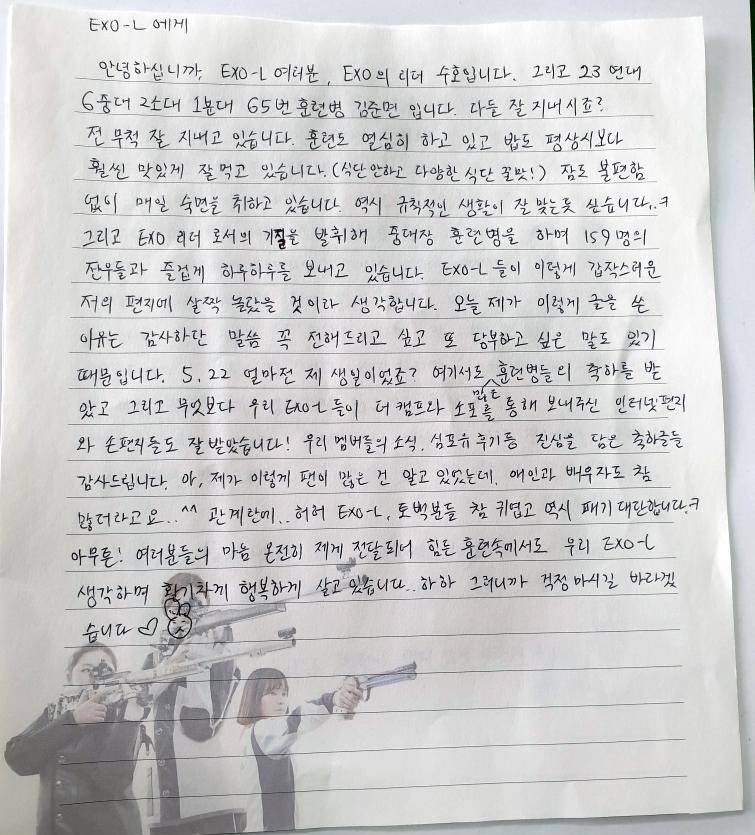 EXO-L 에게
안녕하십니까, EXO-L 여러분, EXO의 리더 수호입니다. 그리고 23 연대
6중대 2소대 1분대 65번 훈련병 김준면 입니다. 다들 잘 지내시죠?
전 무척 잘 지내고 있습니다. 훈련도 열심히 하고 있고 밥도 평상시보다
훨씬 맛있게 잘먹고 있습니다.(식단안하고 다양한 식단 꿀맛!) 잠도 불편함
없이 매일 숙면을 취하고 있습니다. 역시 규칙적인 생활이 잘 맞는듯 싶습니다..ㅋ
그리고 EXO 리더 로서의 기질을 발휘해 중대장 훈련병을 하며 159명의
전우들과 즐겁게 하루하루를 보내고 있습니다. EXO-L 들이 이렇게 갑작스러운
저의 편지에 살짝 놀랐을 것이라 생각합니다. 오늘 제가 이렇게 글을 쓴
이유는 감사하단 말씀 꼭 전해드리고 싶고 또 당부하고 싶은 말도 있기
때문입니다. 5.22 얼마전 제 생일이었죠? 여기서도 많은 훈련병들의 축하를 받
았고 그리고 무엇보다 우리 EXO-L들이 더캠프라 소포를 통해 보내주신 인터넷편지
와 손편지들도 잘 받았습니다! 우리 멤버들의 소식, 심포유 후기등 진심을 담은 축하글들
감사드립니다. 아, 제가 이렇게 팬이 많은 건 알고 있었는데, 애인과 배우자도 참
많더라고요..^^ 관계란에.. 허허 EXO-L, 토벅분들 참 귀엽고 역시 패기 대단합니다.ㅋ
아무튼! 여러분들의 마음 온전히 제게 전달되어 힘든 훈련속에서도 우리 EXO-L
생각하며 활기차게 행복하게 살고 있습니다.. 하하 그러니까 걱정 마시길 바라겠
습니다 ♡